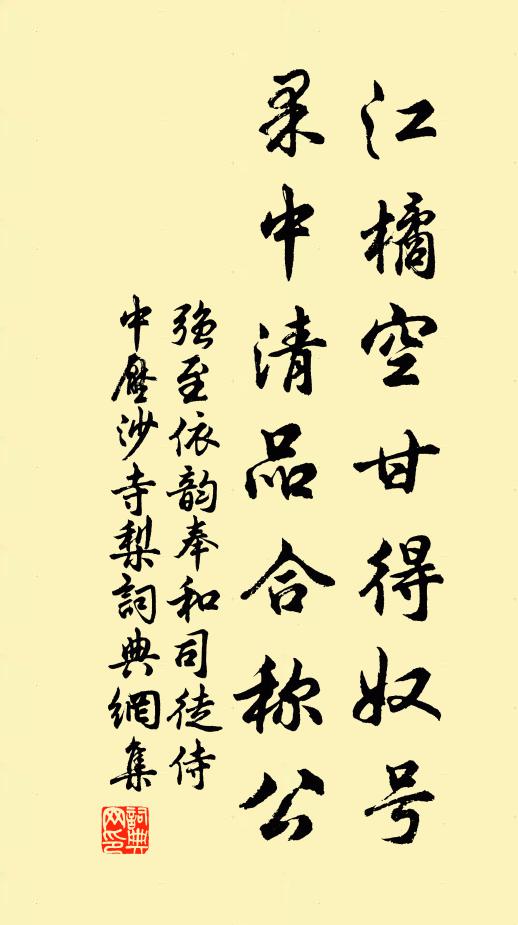 江橘空甘得奴号
果中清品合称公
强至依韵奉和司徒侍
中壓沙寺梨詞典網集
詞典網印